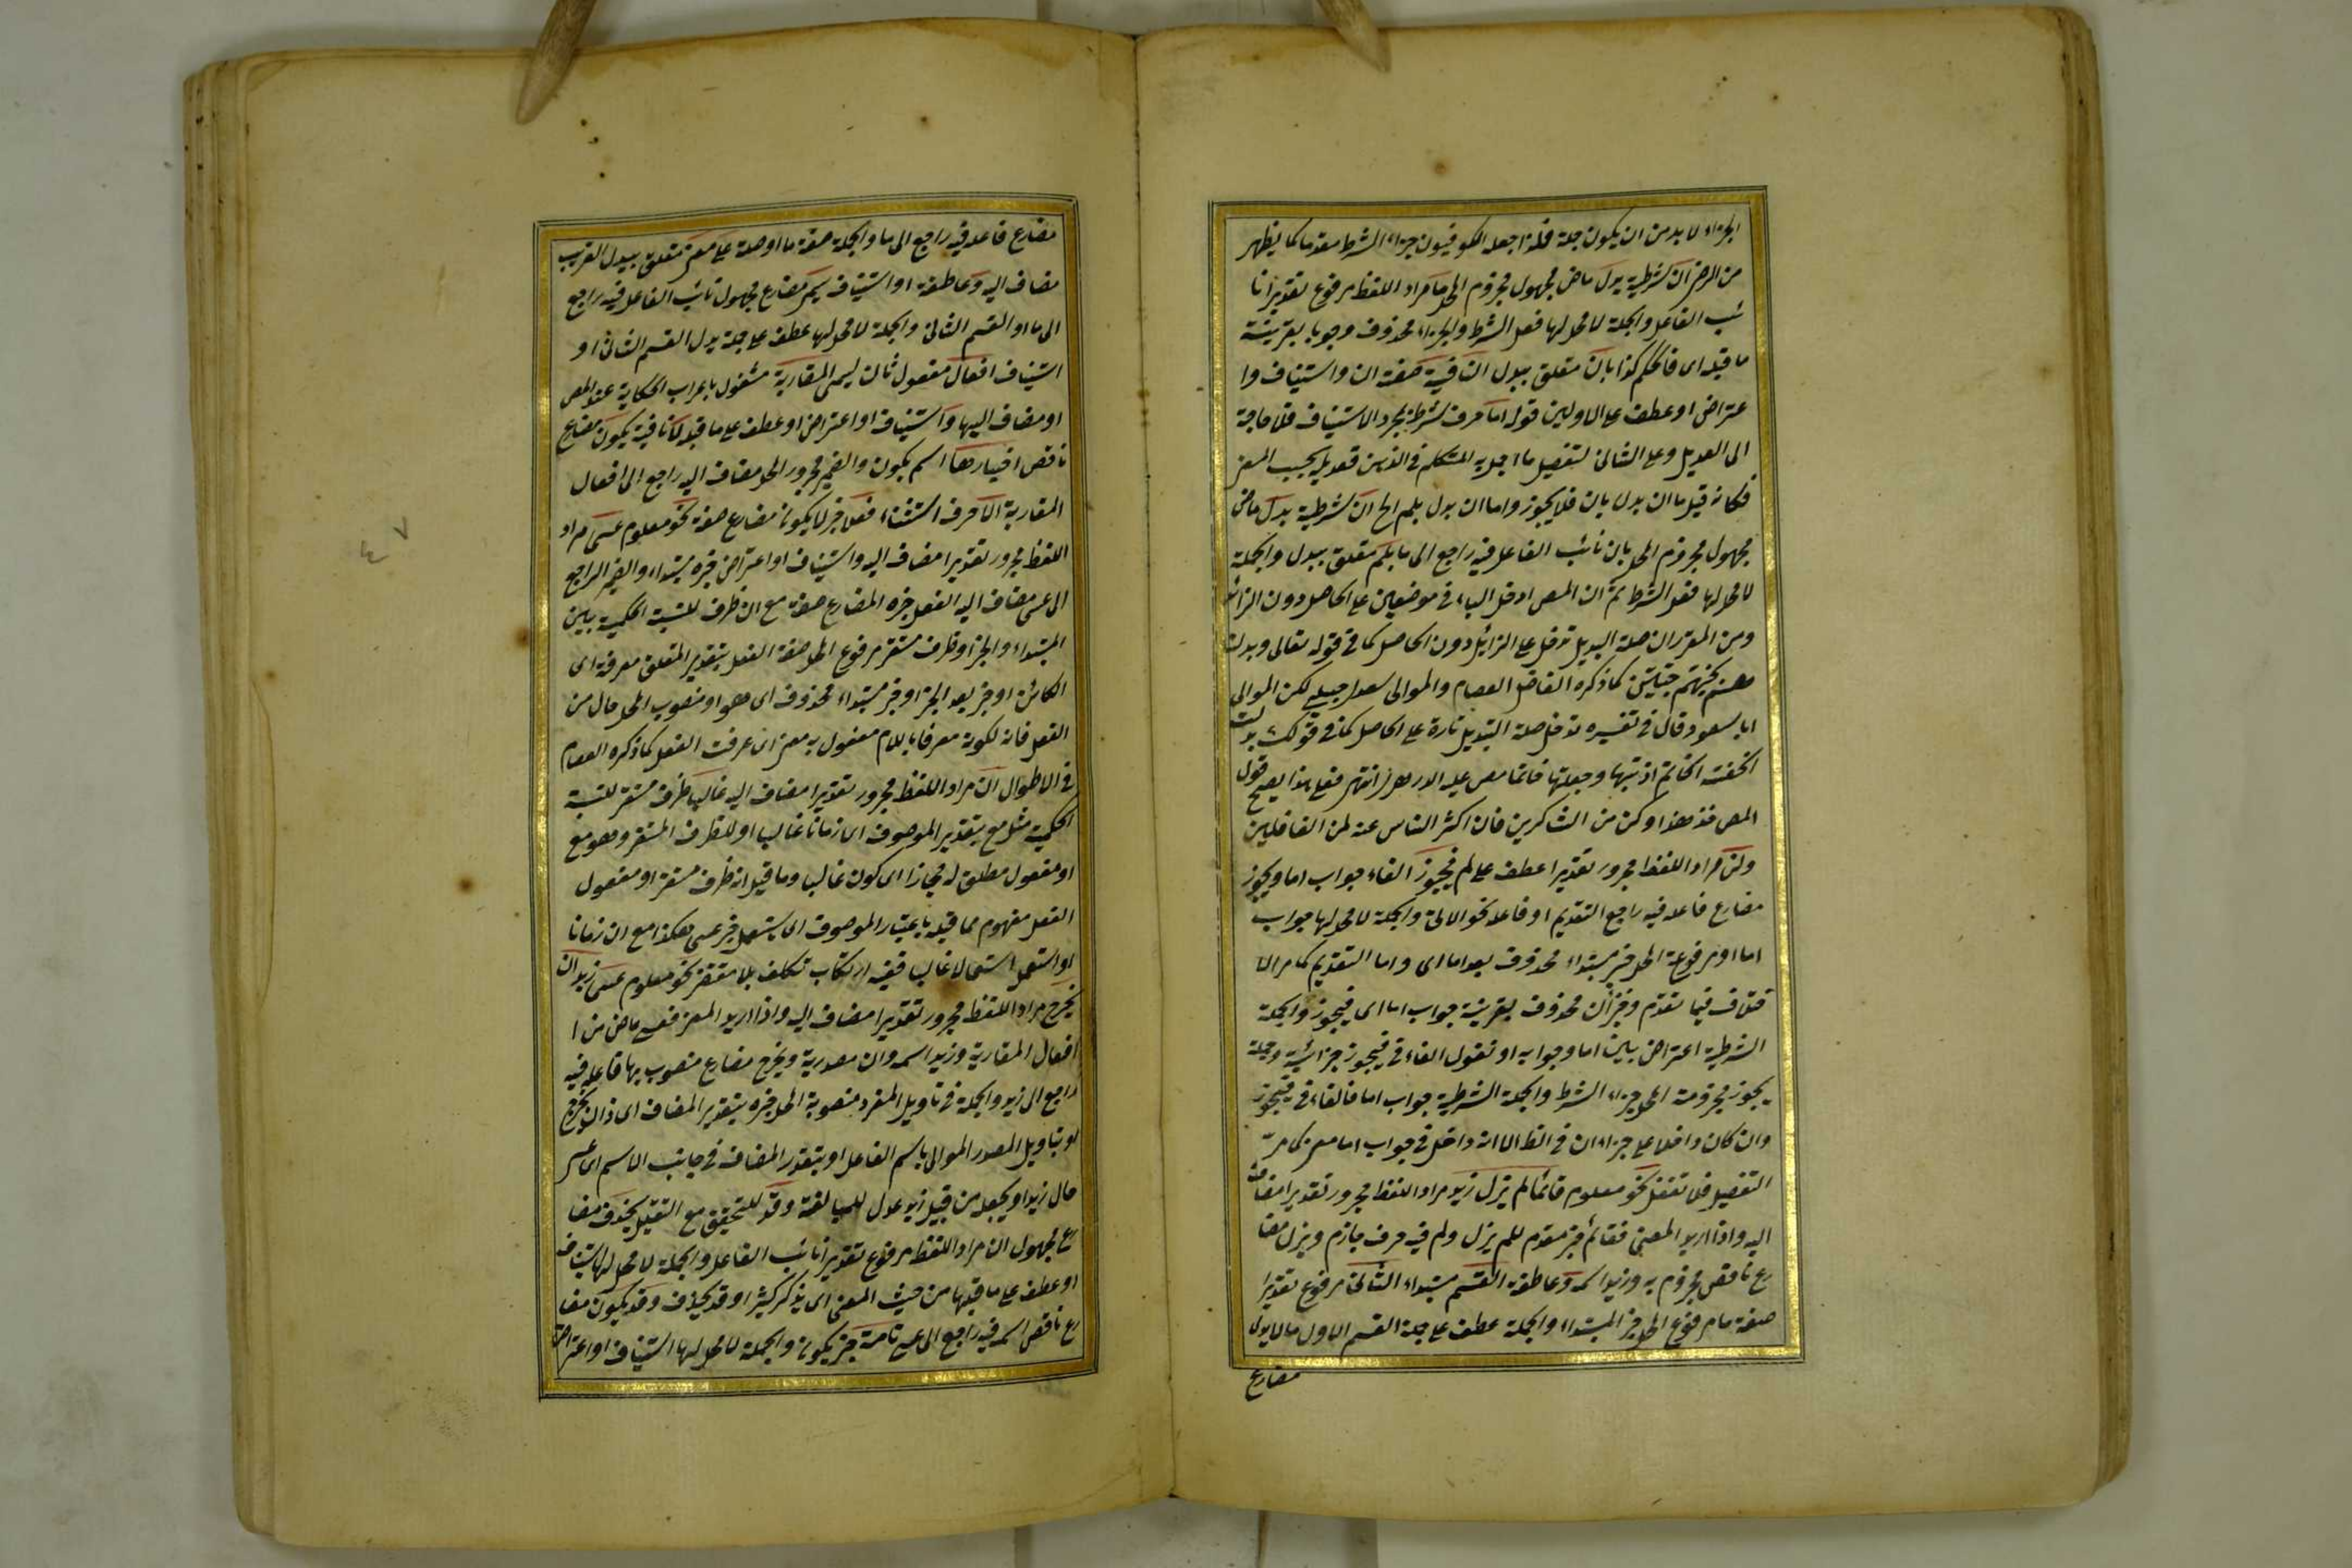 الجزاء لا بد من ان يكون جملة فلذا جعله الكوفيون جزاء الشرط مقدما كما يظهر
من الرضى ان شرطية بدل ماض مجهول مجزوم المحل ما مراد اللفظ مرفوع تقديرا نا
ئب الفاعل والجملة لا محل لها فعل الشرط والجزاء محذوف وجوبا بقرينة
ما قبله اى فالحكم كذا بان متعلق ببدل النافية صفة ان واستيناف وا
عتراض او عطف على الاولين قوله اما حرف شرط لمجرد الاستيناف فلا حاجة
الى العديل وعلى الثانى لتفصيل ما اجمله المتكلم فى الذهن فعديله بحسب المعنى
فكانه قيل ما ان بدل بان فلا يجوز واما ان بدل بلم الخ ان شرطية بدل ماض
مجهول مجزوم المحل بان نائب الفاعل فيه راجع الى ما بلم متعلق ببدل والجملة
لا محل لها فعل الشرط ثم ان المص ادخل الباء فى موضعين على الحاصل دون الزائل
ومن المقرر ان صلة التبديل تدخل على الزائل دون الحاصل كما فى قوله تعالى وبدلنا
هم بجنتيهم جنتين كما ذكره الفاضل العصام والموالى سعد لكن الموالى
ابا سعود قال فى تفسيره تدخل صلة التبديل تارة على الحاصل كما فى قولك بدلت
الحلقة بالخاتم اذا اذبتها وجعلتها خاتما نص عليه الازهرى انتهى فعلى هذا يصح قول
المص فخذ هذا وكن من الشاكرين فان اكثر الناس عنه لمن الغافلين
ولن مراد اللفظ مجرور تقديرا عطف على لم فيجوز الفاء جواب اما ويجوز
مضارع فاعله فيه راجع التقديم او فاعله نحو الاتى والجملة لا محل لها جواب
اما او مرفوعة المحل خبر مبتداء محذوف بعد اما اى واما التقديم كما مر الا
ختلاف فيما تقدم وجزاء ان محذوف بقرينة جواب اما اى فيجوز والجملة
الشرطية اعتراض بين اما وجوابه او نقول الفاء فى فيجوز جزائية وجملة
يجوز مجزومة المحل جزاء الشرط والجملة الشرطية جواب اما فالفاء فى فيجوز
وان كان داخلا على جزاء ان فى الظ الا انه داخل فى جواب اما معنى كما مر
التفصيل فلا تغفل نحو معلوم قائما لم يزل زيد مراد اللفظ مجرور تقديرا مضاف
اليه واذا اريد المعنى فقائما خبر مقدم للم يزل ولم فيه حرف جازم ويزل مضا
رع ناقص مجزوم به وزيد اسمه وعاطفة القسم مبتداء الثانى مرفوع تقديرا
صفة ما مرفوع المحل خبر المبتداء والجملة عطف على جملة القسم الاول ما لا يدل
مضارع
مضارع فاعله فيه راجع الى ما والجملة صفة ما او صلة على معنى متعلق بيدل القرب
مضاف اليه وعاطفة او استيناف يسمى مضارع مجهول نائب الفاعل فيه راجع
الى ما او القسم الثانى والجملة لا محل لها عطف على جملة يدل القسم الثانى او
استيناف افعال مفعول ثان ليسمى المقاربة مشغول باعراب الحكاية عند المص
او مضاف اليها واستيناف او اعتراض او عطف على ما قبله لا نافية يكون مضارع
ناقص اخبارها اسم يكون والضمير مجرور المحل مضاف اليه راجع الى افعال
المقاربة الا حرف استثناء فعلا خبر لا يكون مضارعا صفة نحو معلوم عسى مراد
اللفظ مجرور تقديرا مضاف اليه واستيناف او اعتراض خبره مبتداء والضمير الراجع
الى عسى مضاف اليه الفعل خبره المضارع صفة مع ان ظرف للنسبة الحكمية بين
المبتداء والخبر او ظرف مستقر مرفوع المحل صفة الفعل بتقدير المتعلق معرفة اى
الكائن او خبر بعد الخبر او خبر مبتداء محذوف اى هو او منصوب المحل حال من
الفعل فانه لكونه معرفا باللام مفعول به معنى اى عرفت الفعل كما ذكره العصام
فى الاطوال ان مراد اللفظ مجرور تقديرا مضاف اليه غالبا ظرف مستقر للنسبة
الحكمية مثل مع بتقدير الموصوف اى زمانا غالبا او للظرف المستقر وهو مع
او مفعول مطلق له مجازا اى كون غالبا وما قيل انه ظرف مستقر او مفعول
الفعل مفهوم مما قبله باعتبار الموصوف اى يستعمل خبر عسى هكذا مع ان زمانا
او استعمل استعمالا غالبا ففيه ارتكاب تكلف بلا مقتض نحو معلوم عسى زيد ان
يخرج مراد اللفظ مجرور تقديرا مضاف اليه واذا اريد المعنى فعسى ماض من ا
افعال المقاربة وزيد اسمه وان مصدرية ويخرج مضارع منصوب بها فاعله فيه
راجع الى زيد والجملة فى تاويل المفرد منصوبة المحل خبره بتقدير المضاف اى ذا ان يخرج
او بتاويل المصدر الموالى باسم الفاعل او بتقدير المضاف فى جانب الاسم اى عسى
حال زيد او يجعله من قبيل زيد عدل للمبالغة وقد للتحقيق مع التقليل يحذف مضا
رع مجهول ان مراد اللفظ مرفوع تقديرا نائب الفاعل والجملة لا محل لها استيناف
او عطف على ما قبلها من حيث المعنى اى يذكر كثيرا وقد يحذف وقد يكون مضا
رع ناقص اسمه فيه راجع الى عسى تامة خبر يكون والجملة لا محل لها استيناف او اعتراض
٤٧